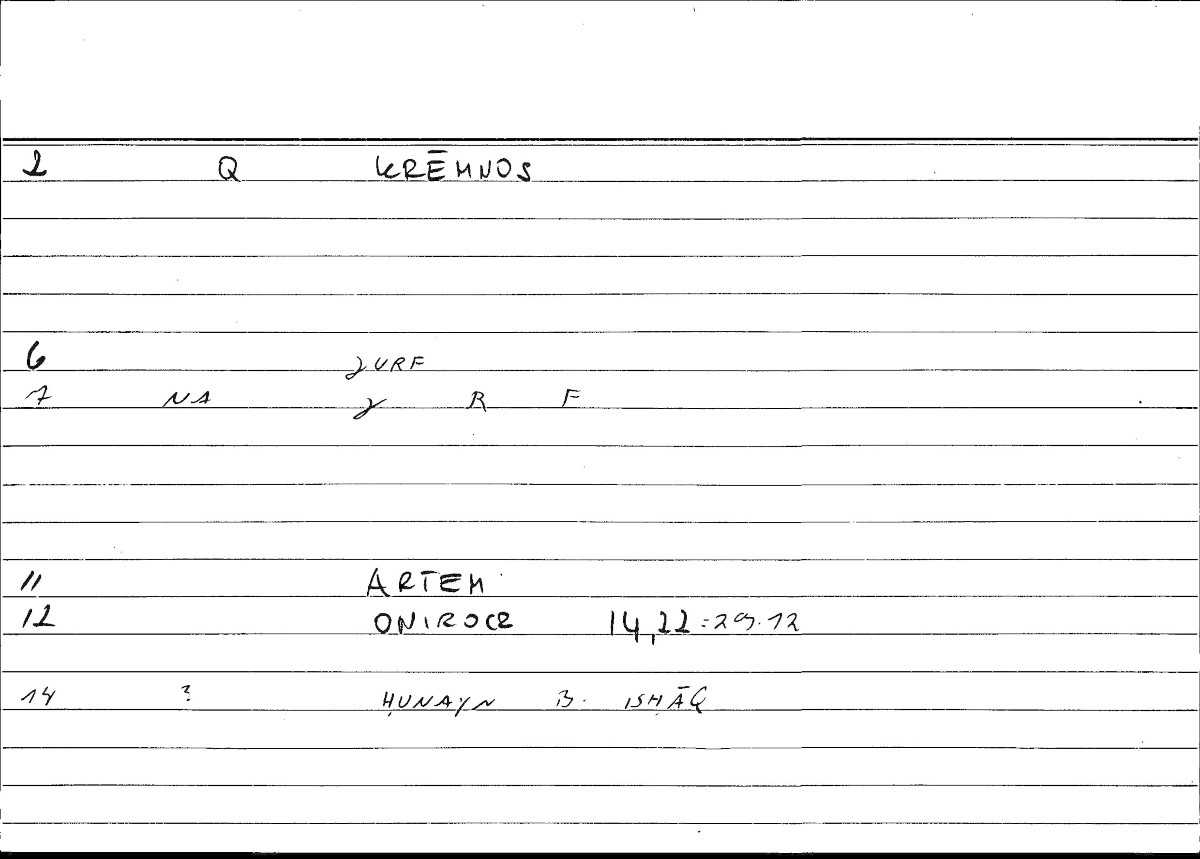 2 Q KRĒMNOS
6 ɣURF
7 NA ɣ R F
11 ARTEM
12 ONIROCR 14,22 = 29.12
14 ? ḤUNAYN B. ISḤĀQ